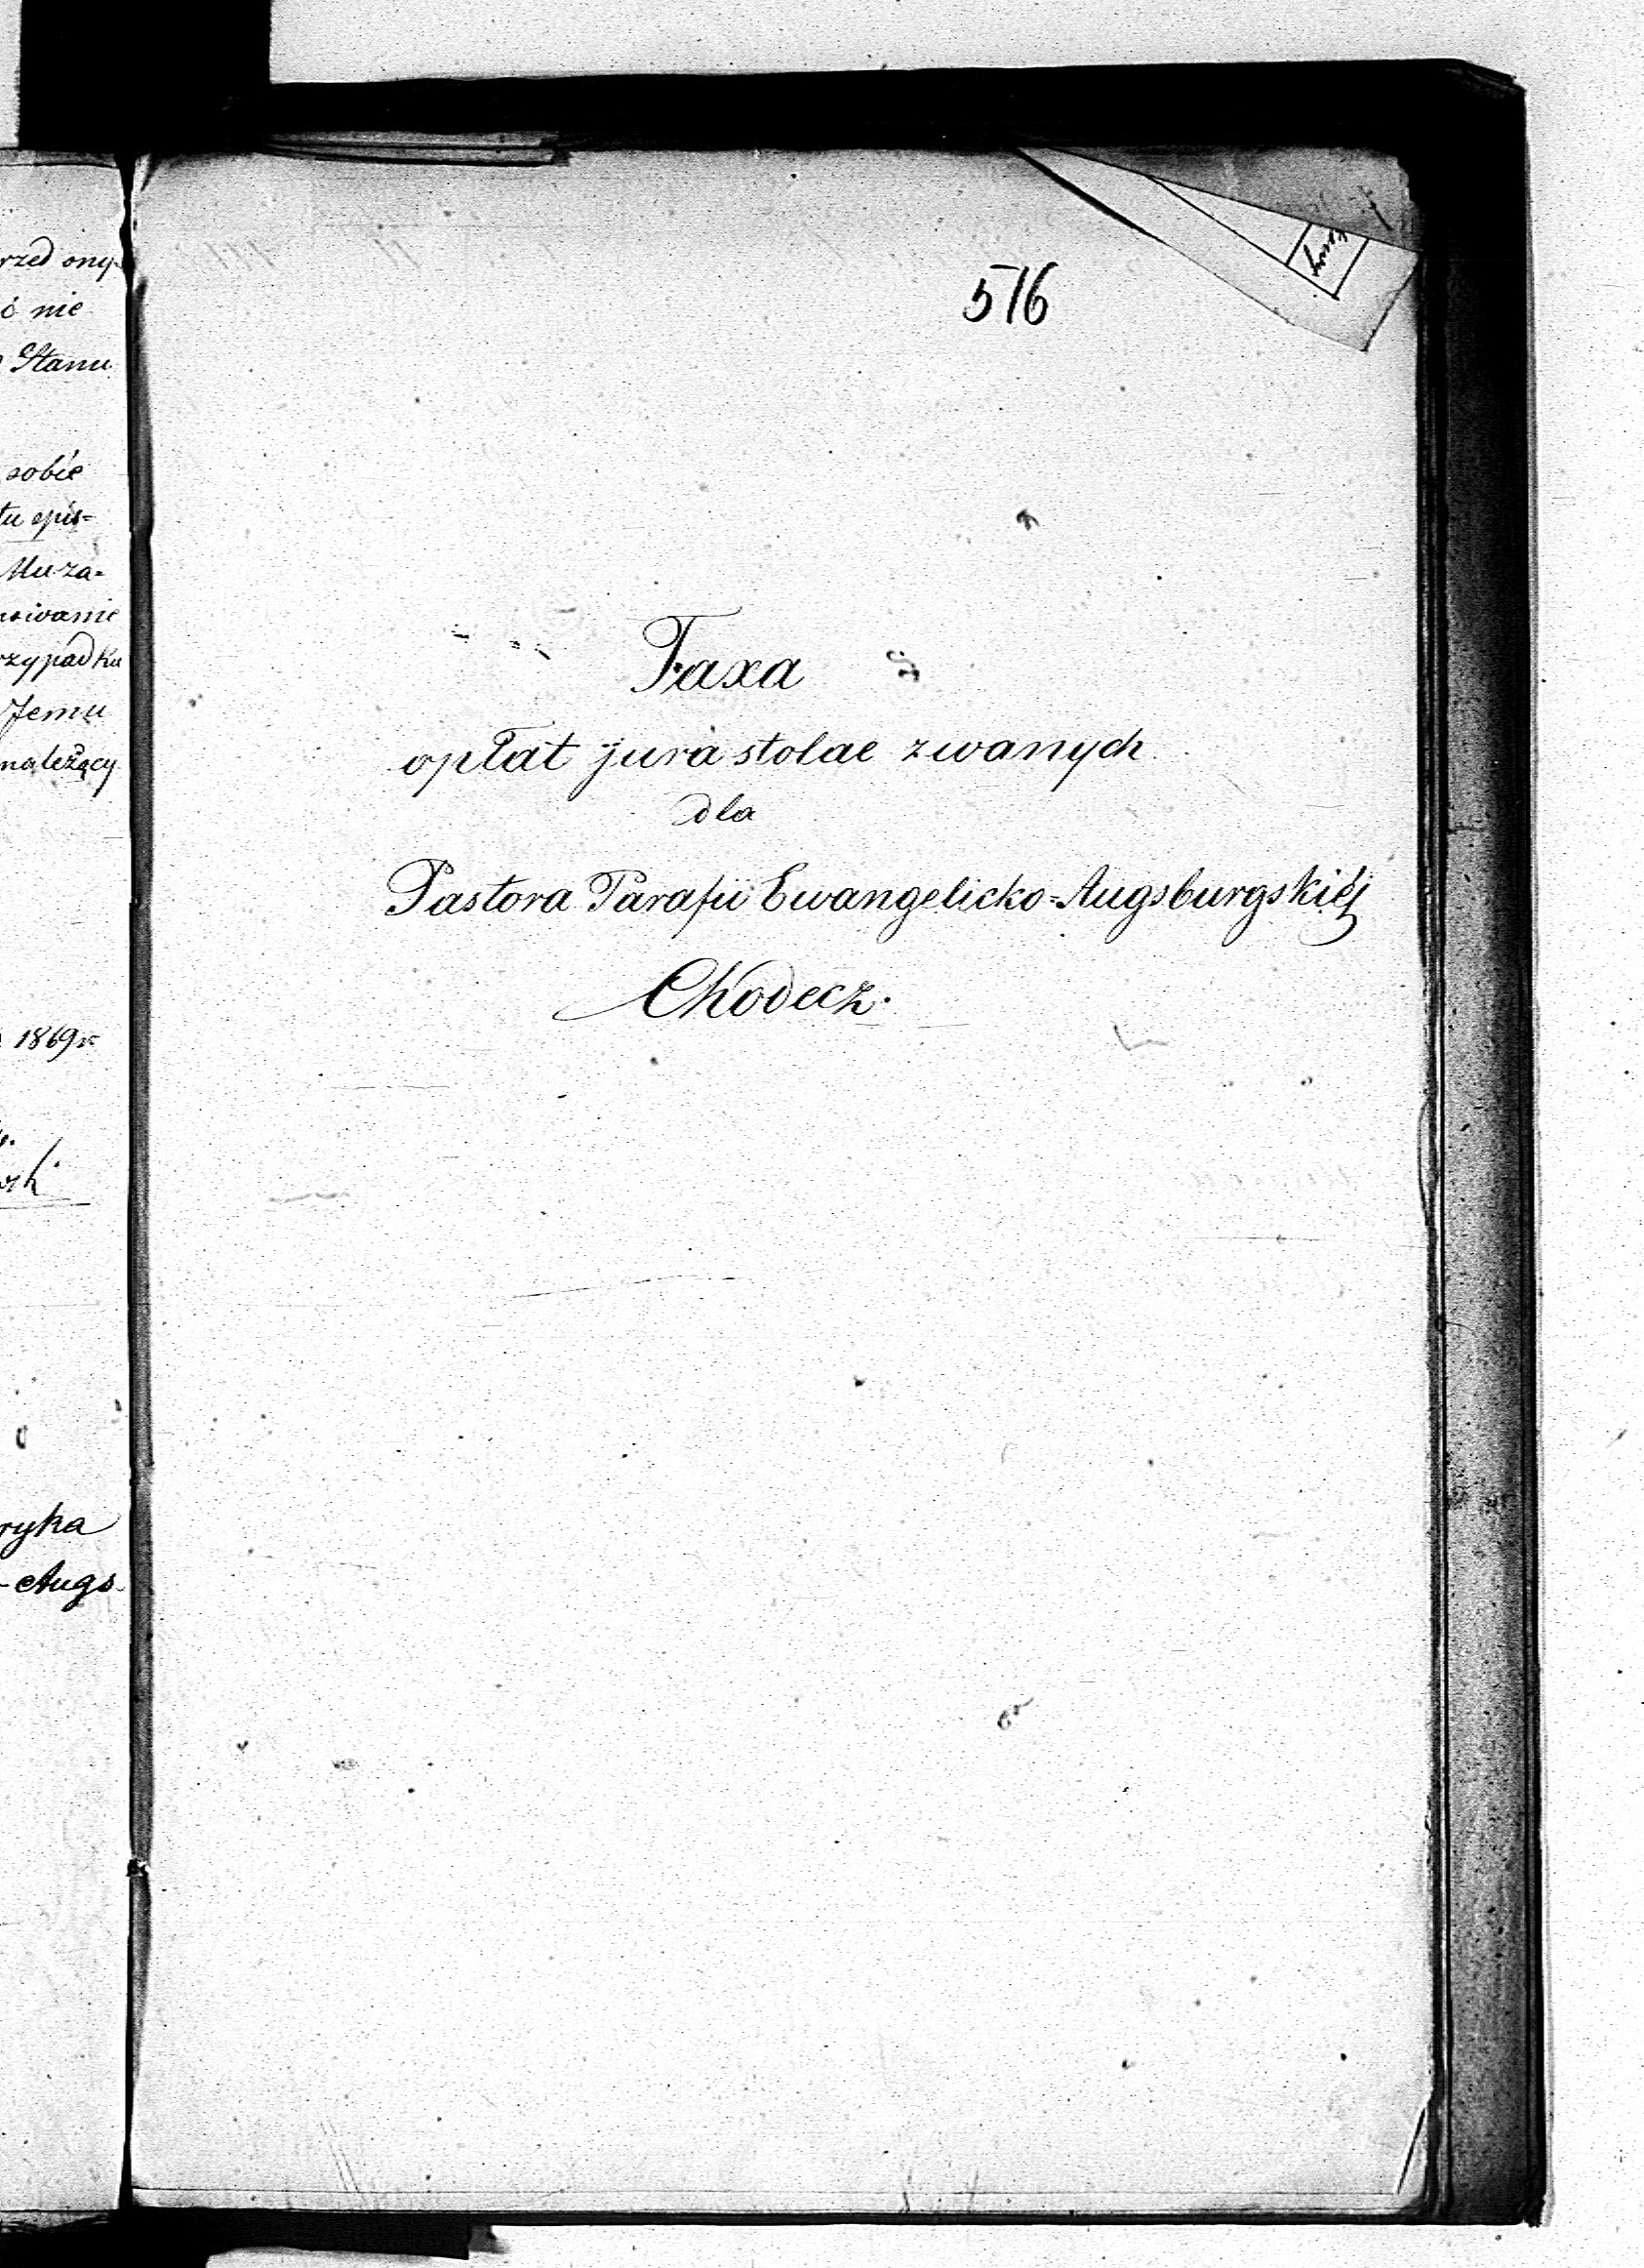 rzed ony
ć nie
Stanu
sobie
tu epis=
Muza=
sowanie
rzypadku
Jemu
należący
1869 r
ryka
-Augs
576
Taxa
opłat jura stolae zwanych
dla
Pastora Parafii Ewangelicko=Augsburgskiéj
Chodecz.